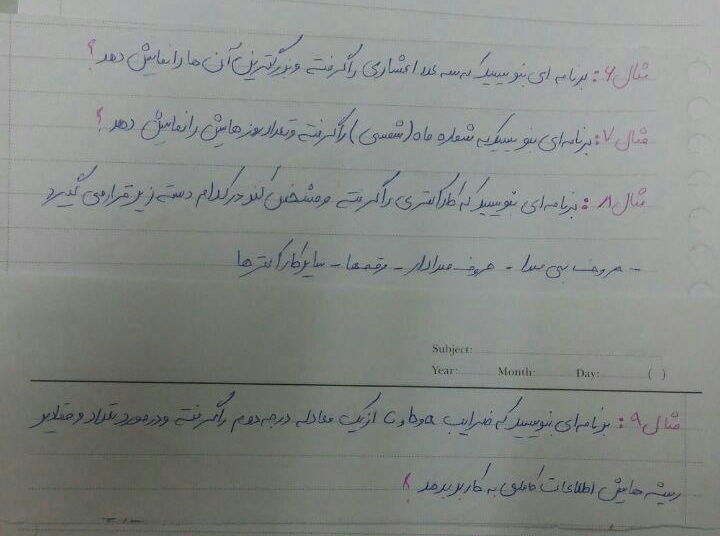 مثال ۶: برنامه ای بنویسید که سه عدد اعشاری را گرفته و بزرگترین آن ها را نمایش دهد؟
مثال ۷: برنامه ای بنویسید که شماره ماه (شمسی) را گرفته و تعداد روزهایش را نمایش دهد؟
مثال ۸: برنامه ای بنویسید که کاراکتری را گرفته و مشخص کند در کدام دسته زیر قرار می گیرد
- حروف بی صدا - حروف صدادار - رقمها - سایر کاراکترها
Subject:
Year: Month: Day: ( )
مثال ۹: برنامه ای بنویسید که ضرایب a و b و c از یک معادله درجه دوم را گرفته و در مورد تعداد و مقادیر
ریشه هایش اطلاعات کاملی به کاربر بدهد؟